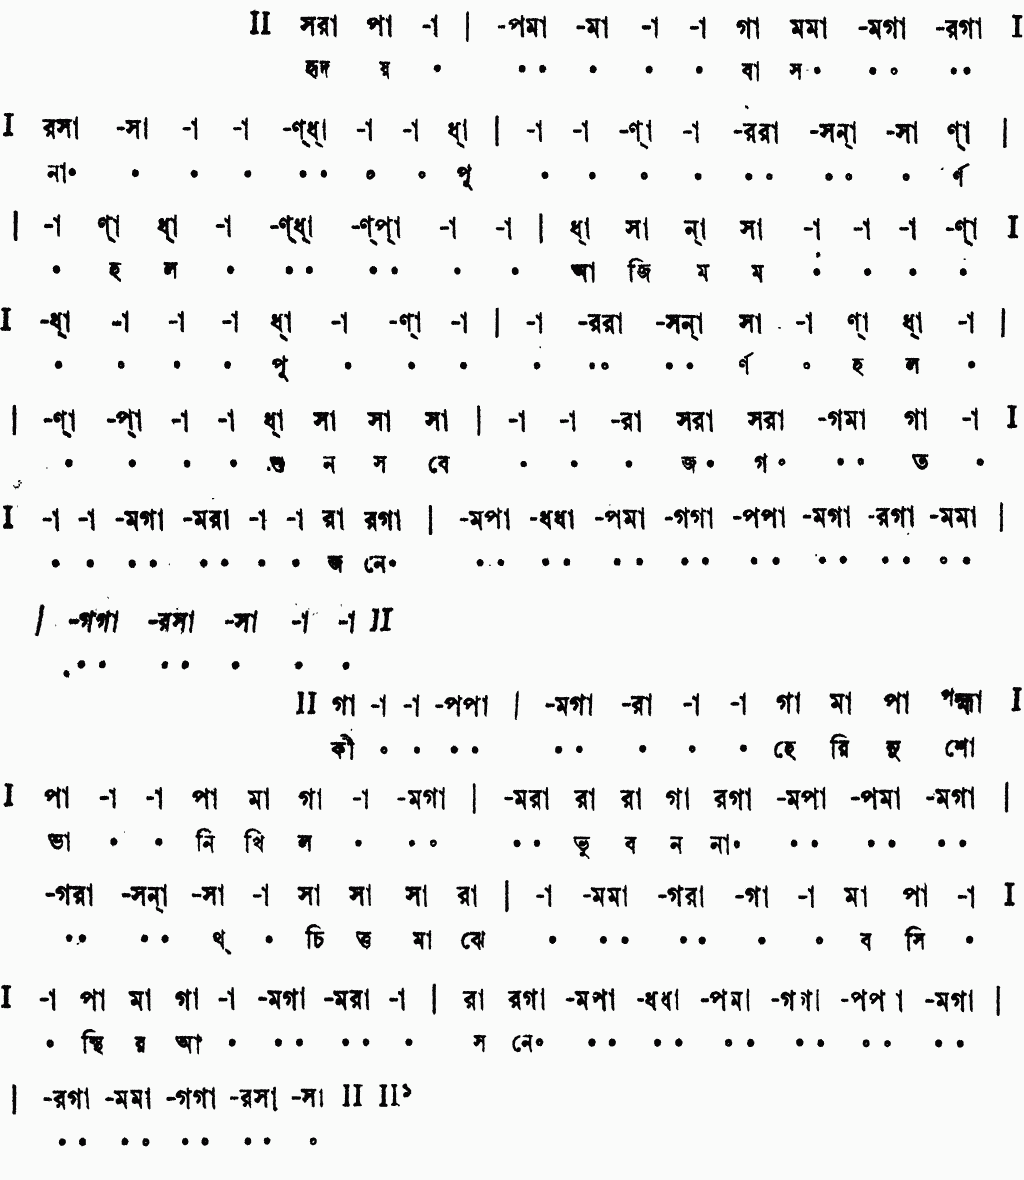 II সরা পা -া | -পমা -মা -া -া গা মমা -মগা -রগা I
হৃদ য় • •• • • • বা স• •• ••
I রসা -সা -া -া -ণ্ধ্া -া -া ধ্া | -া -া -ণ্া -া -ররা -সন্া -সা ণ্া |
না• • • • •• • • পূ • • • • •• •• • র্ণ
| -া ণ্া ধ্া -া -ণ্ধ্া -ণ্প্া -া -া | ধ্া সা ন্া সা -া -া -া -ণ্া I
• হ ল • •• •• • • আ জি ম ম • • • •
I -ধ্া -া -া -া ধ্া -া -ণ্া -া | -া -ররা -সন্া সা -া ণ্া ধ্া -া |
• • • • পূ • • • • •• •• র্ণ • হ ল •
| -ণ্া -প্া -া -া ধ্া সা সা সা | -া -া -রা সরা সরা -গমা গা -া I
• • • • শু ন স বে • • • জ• গ• •• ত •
I -া -া -মগা -মরা -া -া রা রগা | -মপা -ধধা -পমা -গগা -পপা -মগা -রগা -মমা |
• • •• •• • • জ নে• •• •• •• •• •• •• •• ••
| -গগা -রসা -সা -া -া II
•• •• • • •
II গা -া -া -পপা | -মগা -রা -া -া গা মা পা পহ্মা I
কী • • •• •• • • • হে রি নু শো
I পা -া -া পা মা গা -া -মগা | -মরা রা রা গা রগা -মপা -পমা -মগা |
ভা • • নি খি ল • •• •• ভু ব ন না• •• •• ••
-গরা -সন্া -সা -া সা সা সা রা | -া -মমা -গরা -গা -া মা পা -া I
•• •• থ্ • চি ত্ত মা ঝে • •• •• • • ব সি •
I -া পা মা গা -া -মগা -মরা -া | রা রগা -মপা -ধধা -পমা -গগা -পপা -মগা |
• স্থি র আ • •• •• • স নে• •• •• •• •• •• ••
| -রগা -মমা -গগা -রসা -সা II II১
•• •• •• •• •